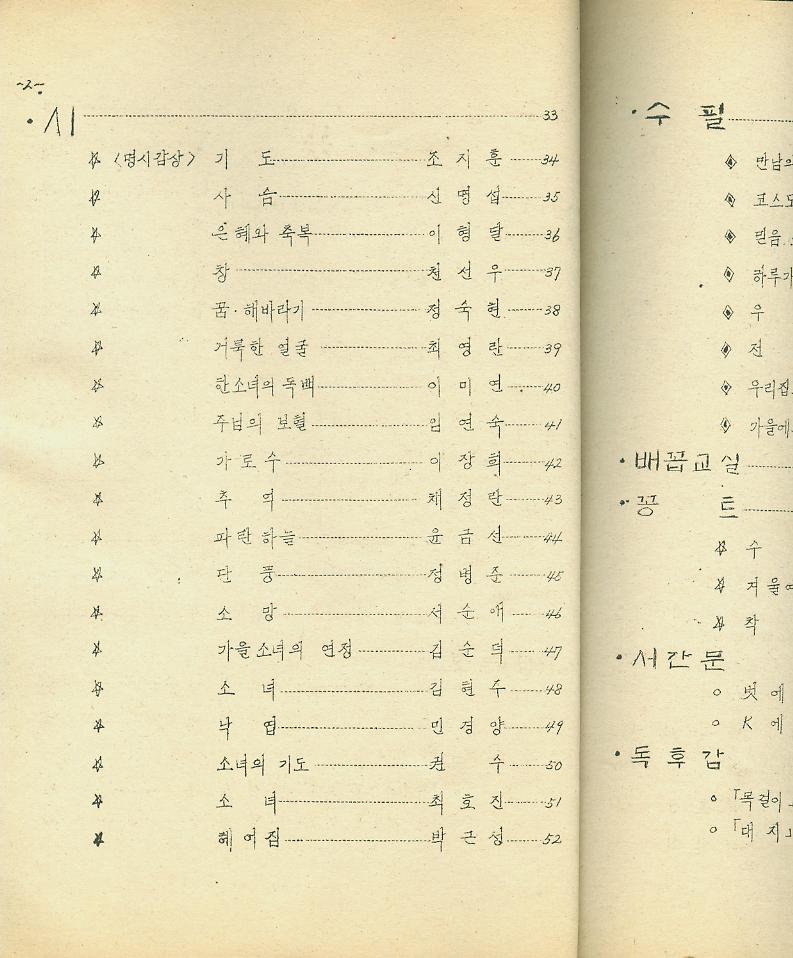 -2-
·시 33
☆ <명시감상> 기 도 조지훈 34
☆ 사 슴 신명섭 35
☆ 은혜와 축복 이형달 36
☆ 창 천선우 37
☆ 꿈·해바라기 정숙현 38
☆ 거룩한 얼굴 최영란 39
☆ 한소녀의 독백 이미연 40
☆ 주님의 보혈 임연숙 41
☆ 가로수 이장희 42
☆ 추 억 채정란 43
☆ 파란하늘 윤금선 44
☆ 단 풍 정병준 45
☆ 소 망 서순애 46
☆ 가을소녀의 연정 김순덕 47
☆ 소 녀 김현주 48
☆ 낙 엽 민경양 49
☆ 소녀의 기도 권 수 50
☆ 소 녀 최호진 51
★ 헤여짐 박근성 52
·수 필
◈ 만남의
◈ 코스모
◈ 믿음
◈ 하루가
◈ 우
◈ 전
◈ 우리집
◈ 가을에
·배꼽교실
·꽁 트
☆ 수
☆ 겨울
☆ 착
·서간문
○ 벗에
○ K에
·독후감
○ 「목걸이
○ 「대지」